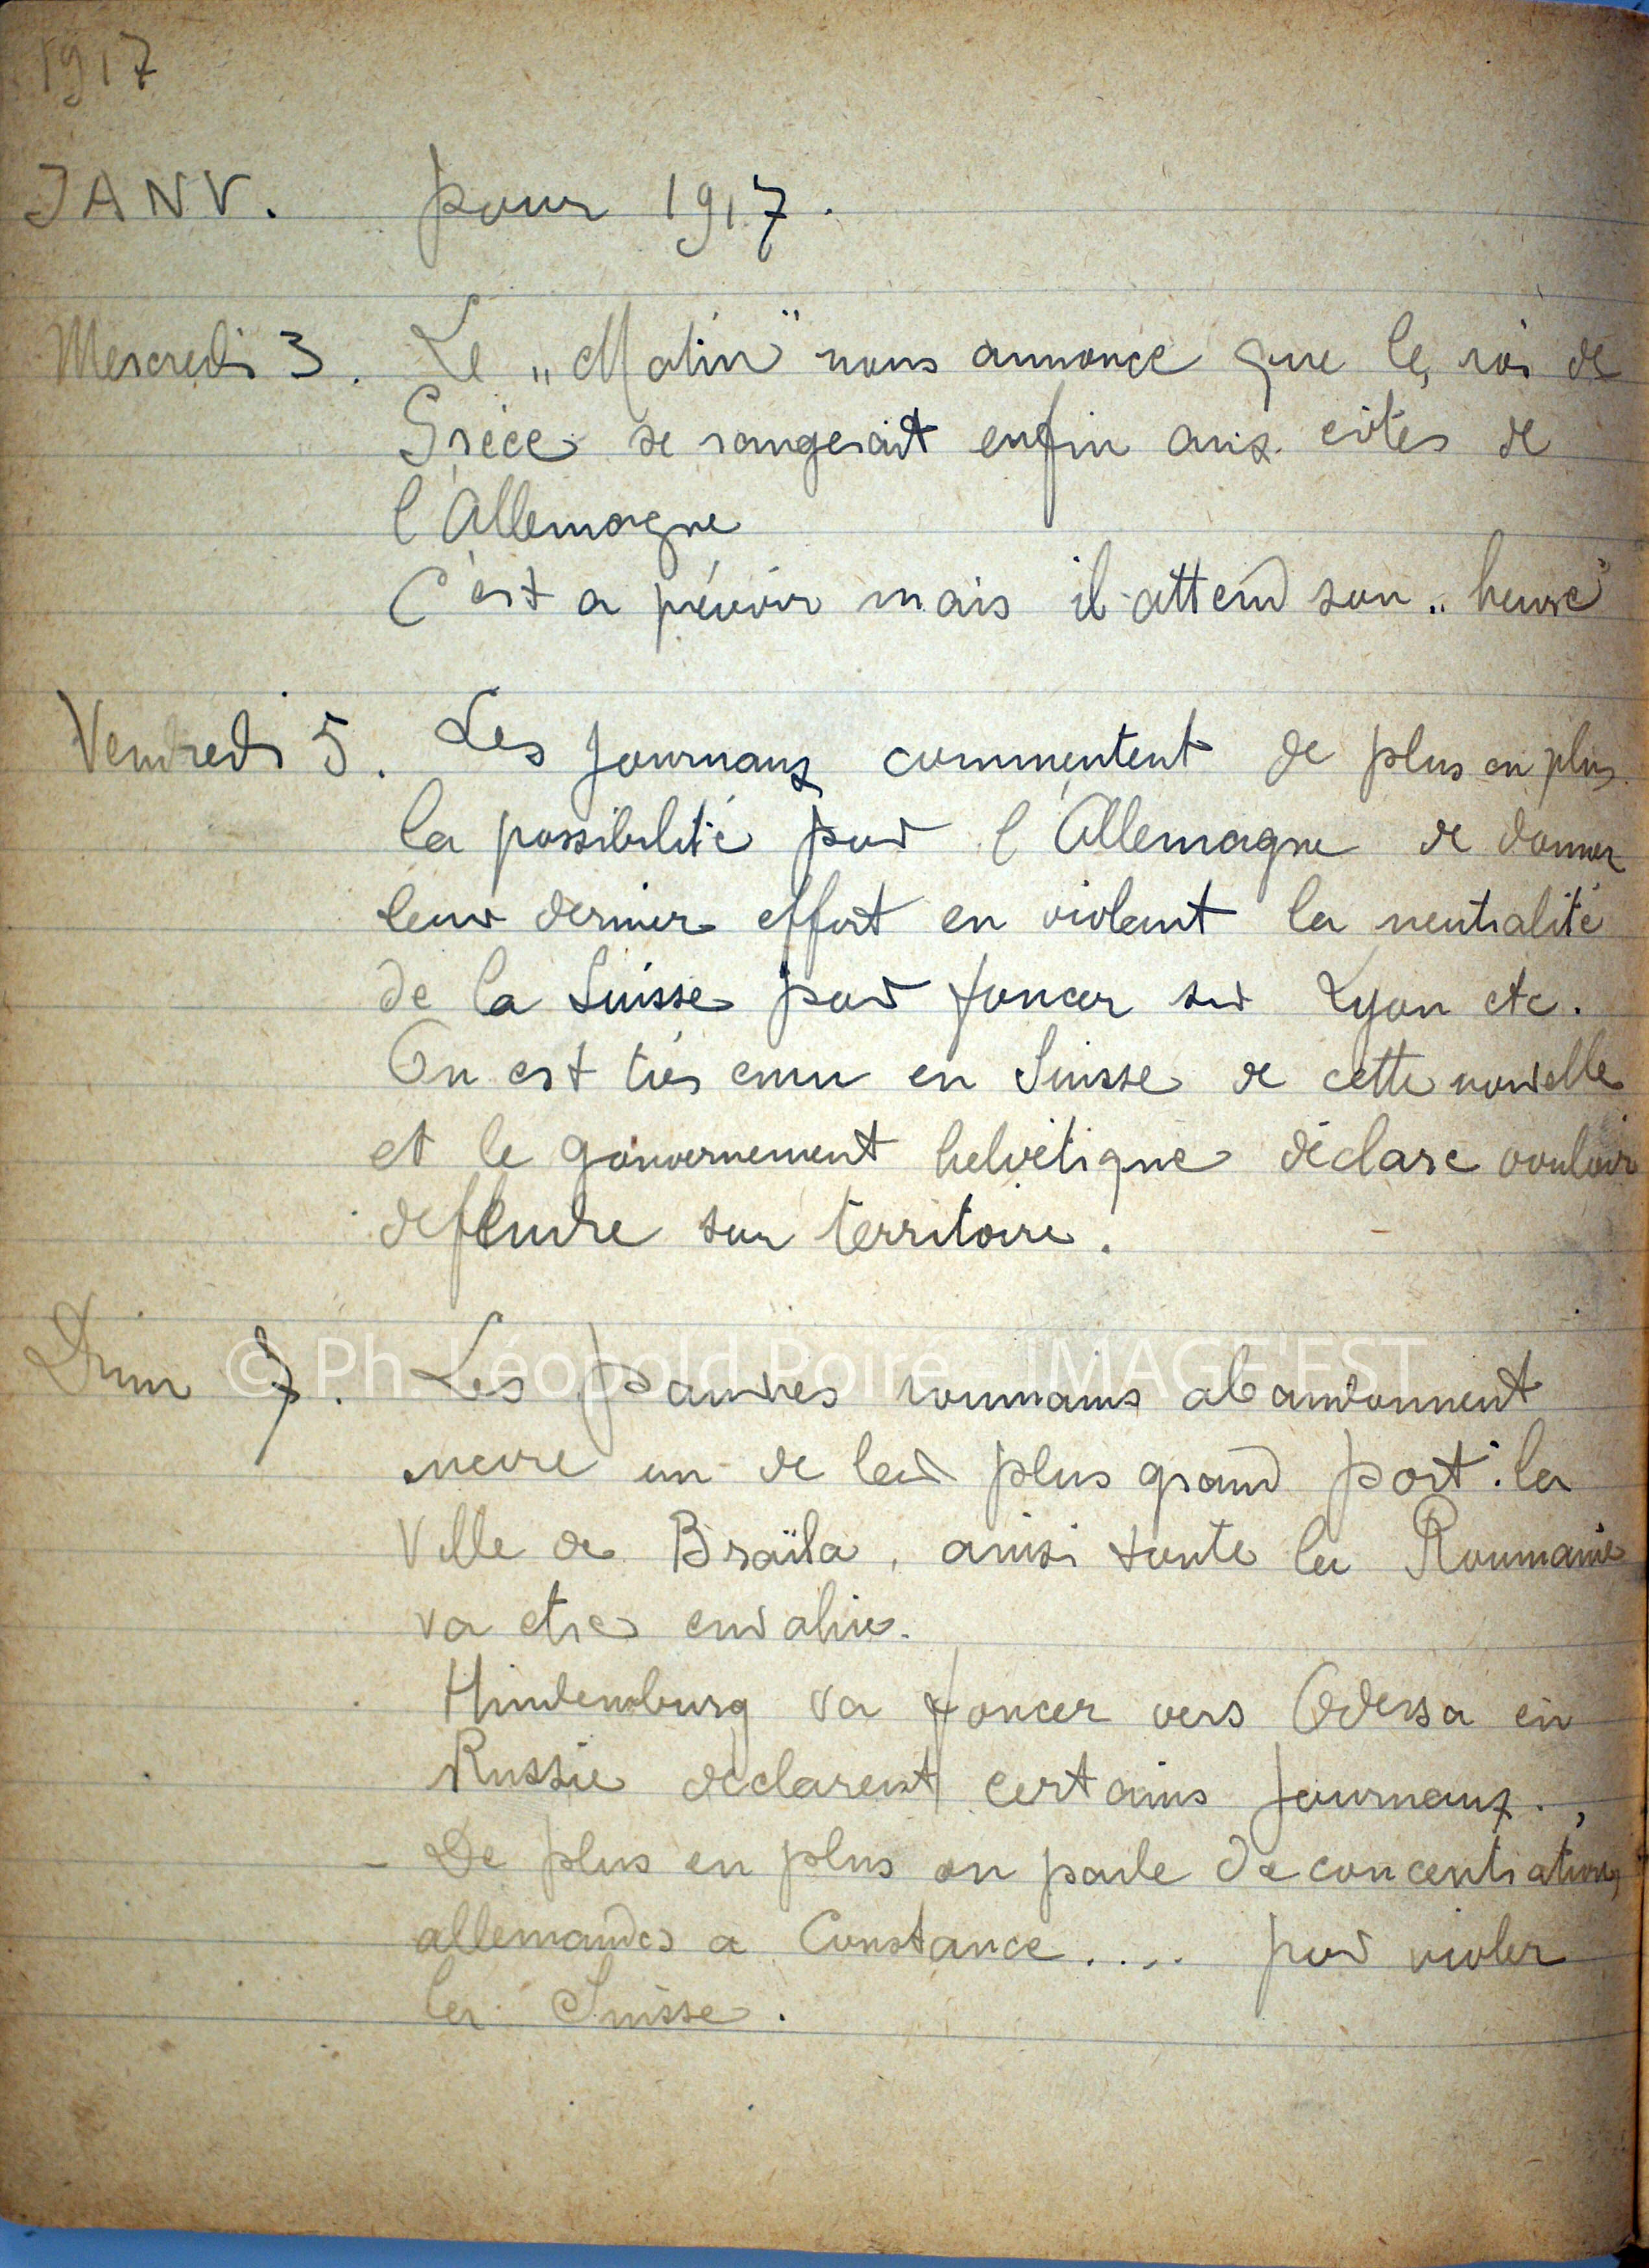 1917
JANV. pour 1917.
Mercredi 3. Le „Matin" nous annonce que le roi de
Grèce se rangerait enfin aux côtés de
l'Allemagne
C'est a prévoir mais il attend son „heure"
Vendredi 5. Les journaux commentent de plus en plus
la possibilité pour l'Allemagne de donner
leur dernier effort en violant la neutralité
de la Suisse pour foncer sur Lyon etc.
On est très emu en Suisse de cette nouvelle
et le gouvernement helvétique déclare vouloir
deffendre son territoire.
Dim 7. Les pauvres roumains abandonnent
encore un de leur plus grand port : la
Ville de Braïla, ainsi toute la Roumanie
va etre envahie.
Hindemburg va foncer vers Odessa en
Russie declarent certains journaux.
- De plus en plus on parle de concentrations
allemandes a Constance..... pour violer
la Suisse.
© Ph. Léopold Poiré, IMAGE'EST